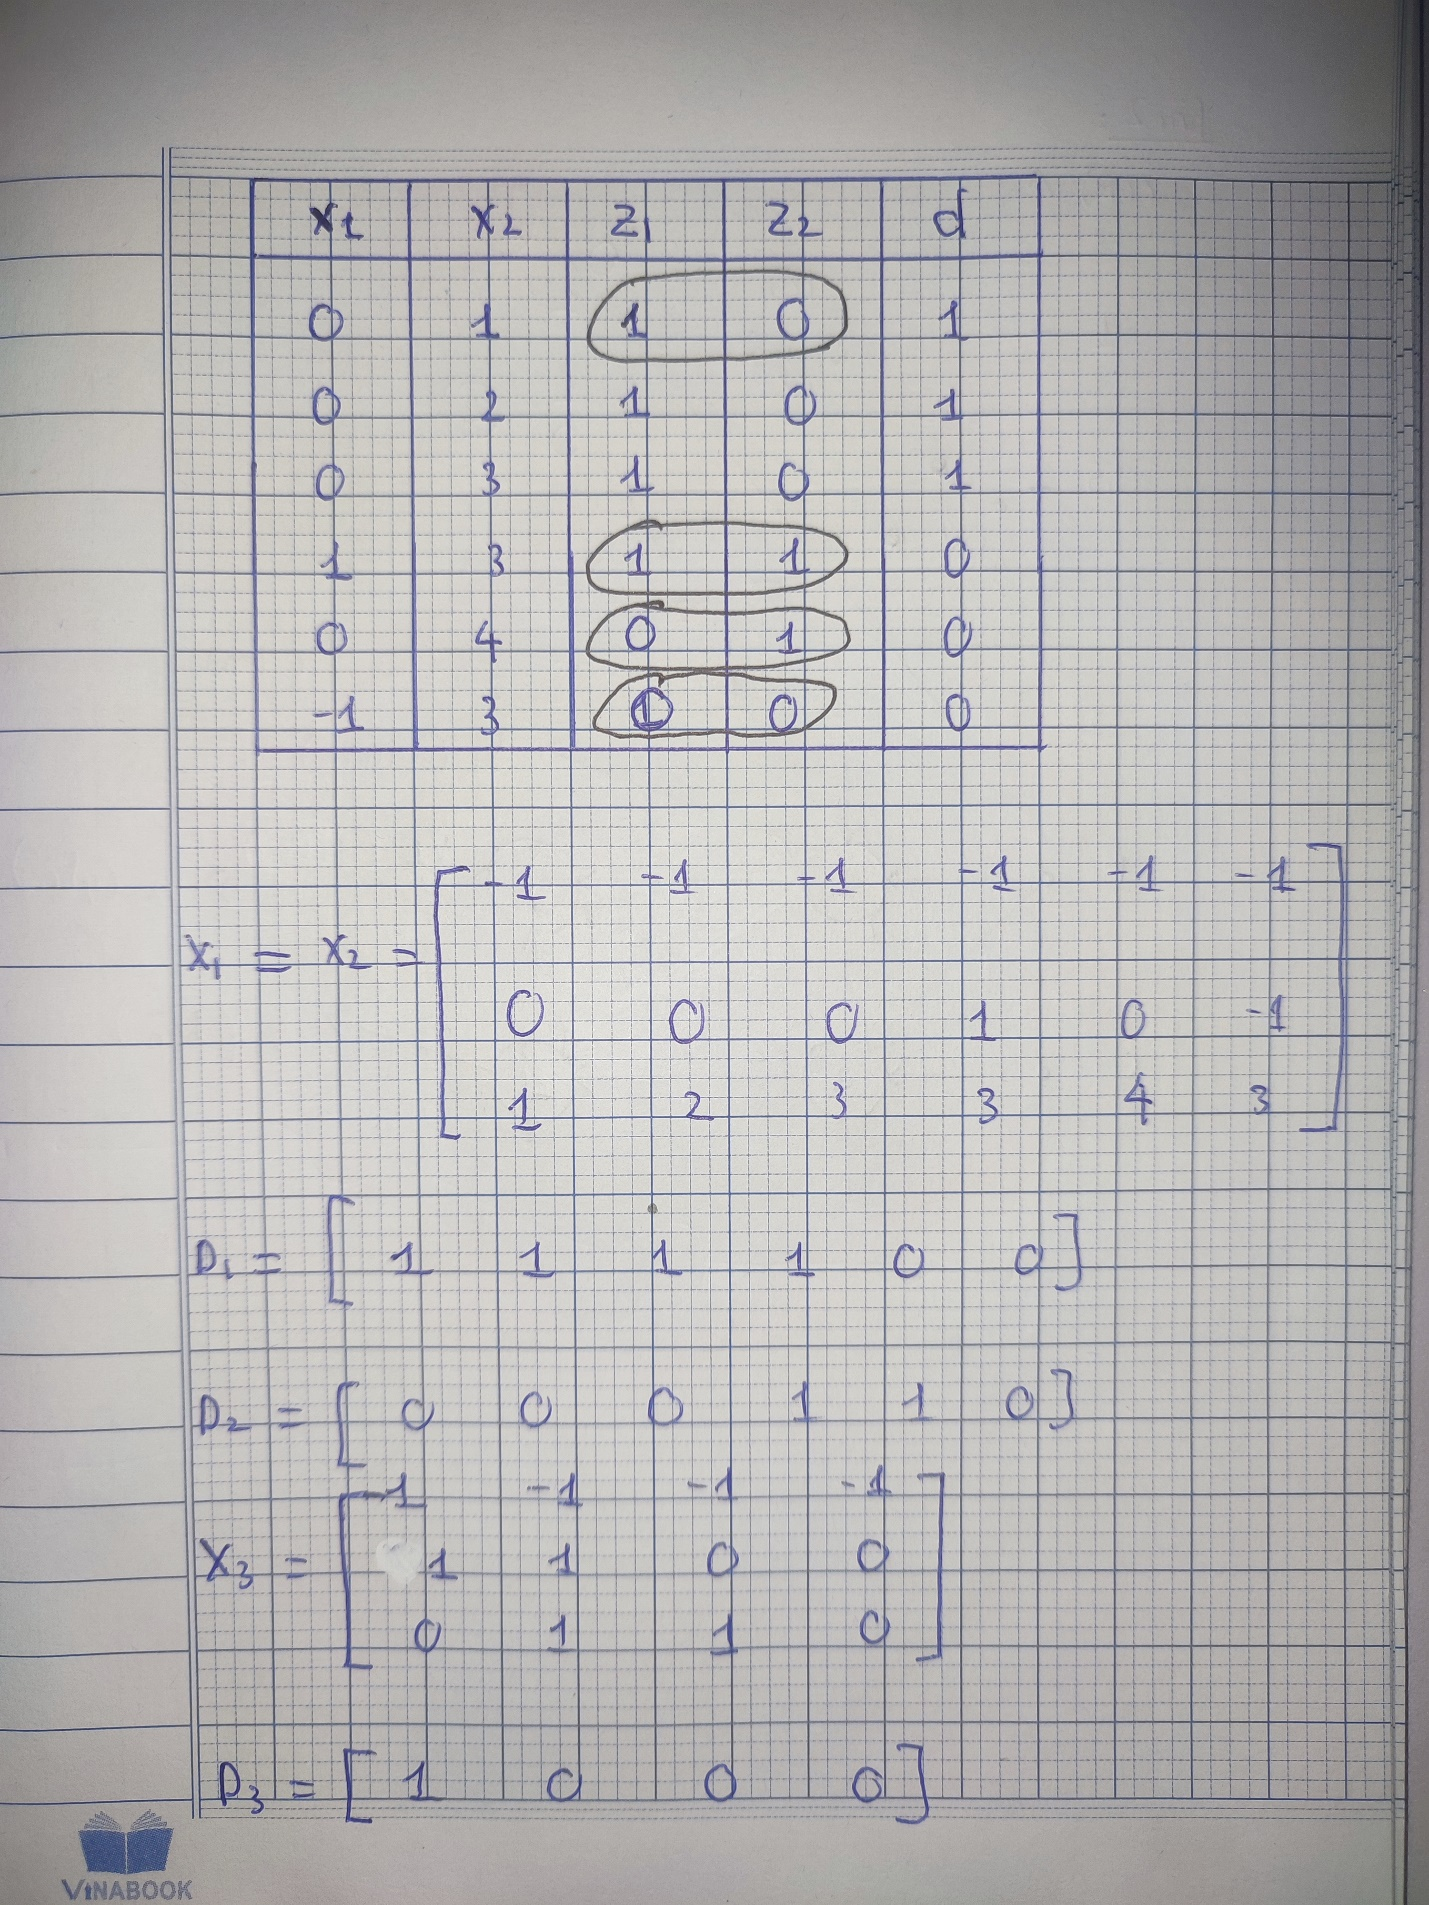 x1 x2 z1 z2 d
0 1 1 0 1
0 2 1 0 1
0 3 1 0 1
1 3 1 1 0
0 4 0 1 0
-1 3 0 0
-1 -1 -1 -1 -1 -1
X1 = X2 =
0 0 0 1 0 -1
1 2 3 3 4 3
D1 = [ 1 1 1 1 0 0 ]
D2 = [ 0 0 0 1 1 0 ]
-1 -1 -1 -1
X3 = 1 1 0 0
0 1 1 0
D3 = [ 1 0 0 0 ]
VINABOOK